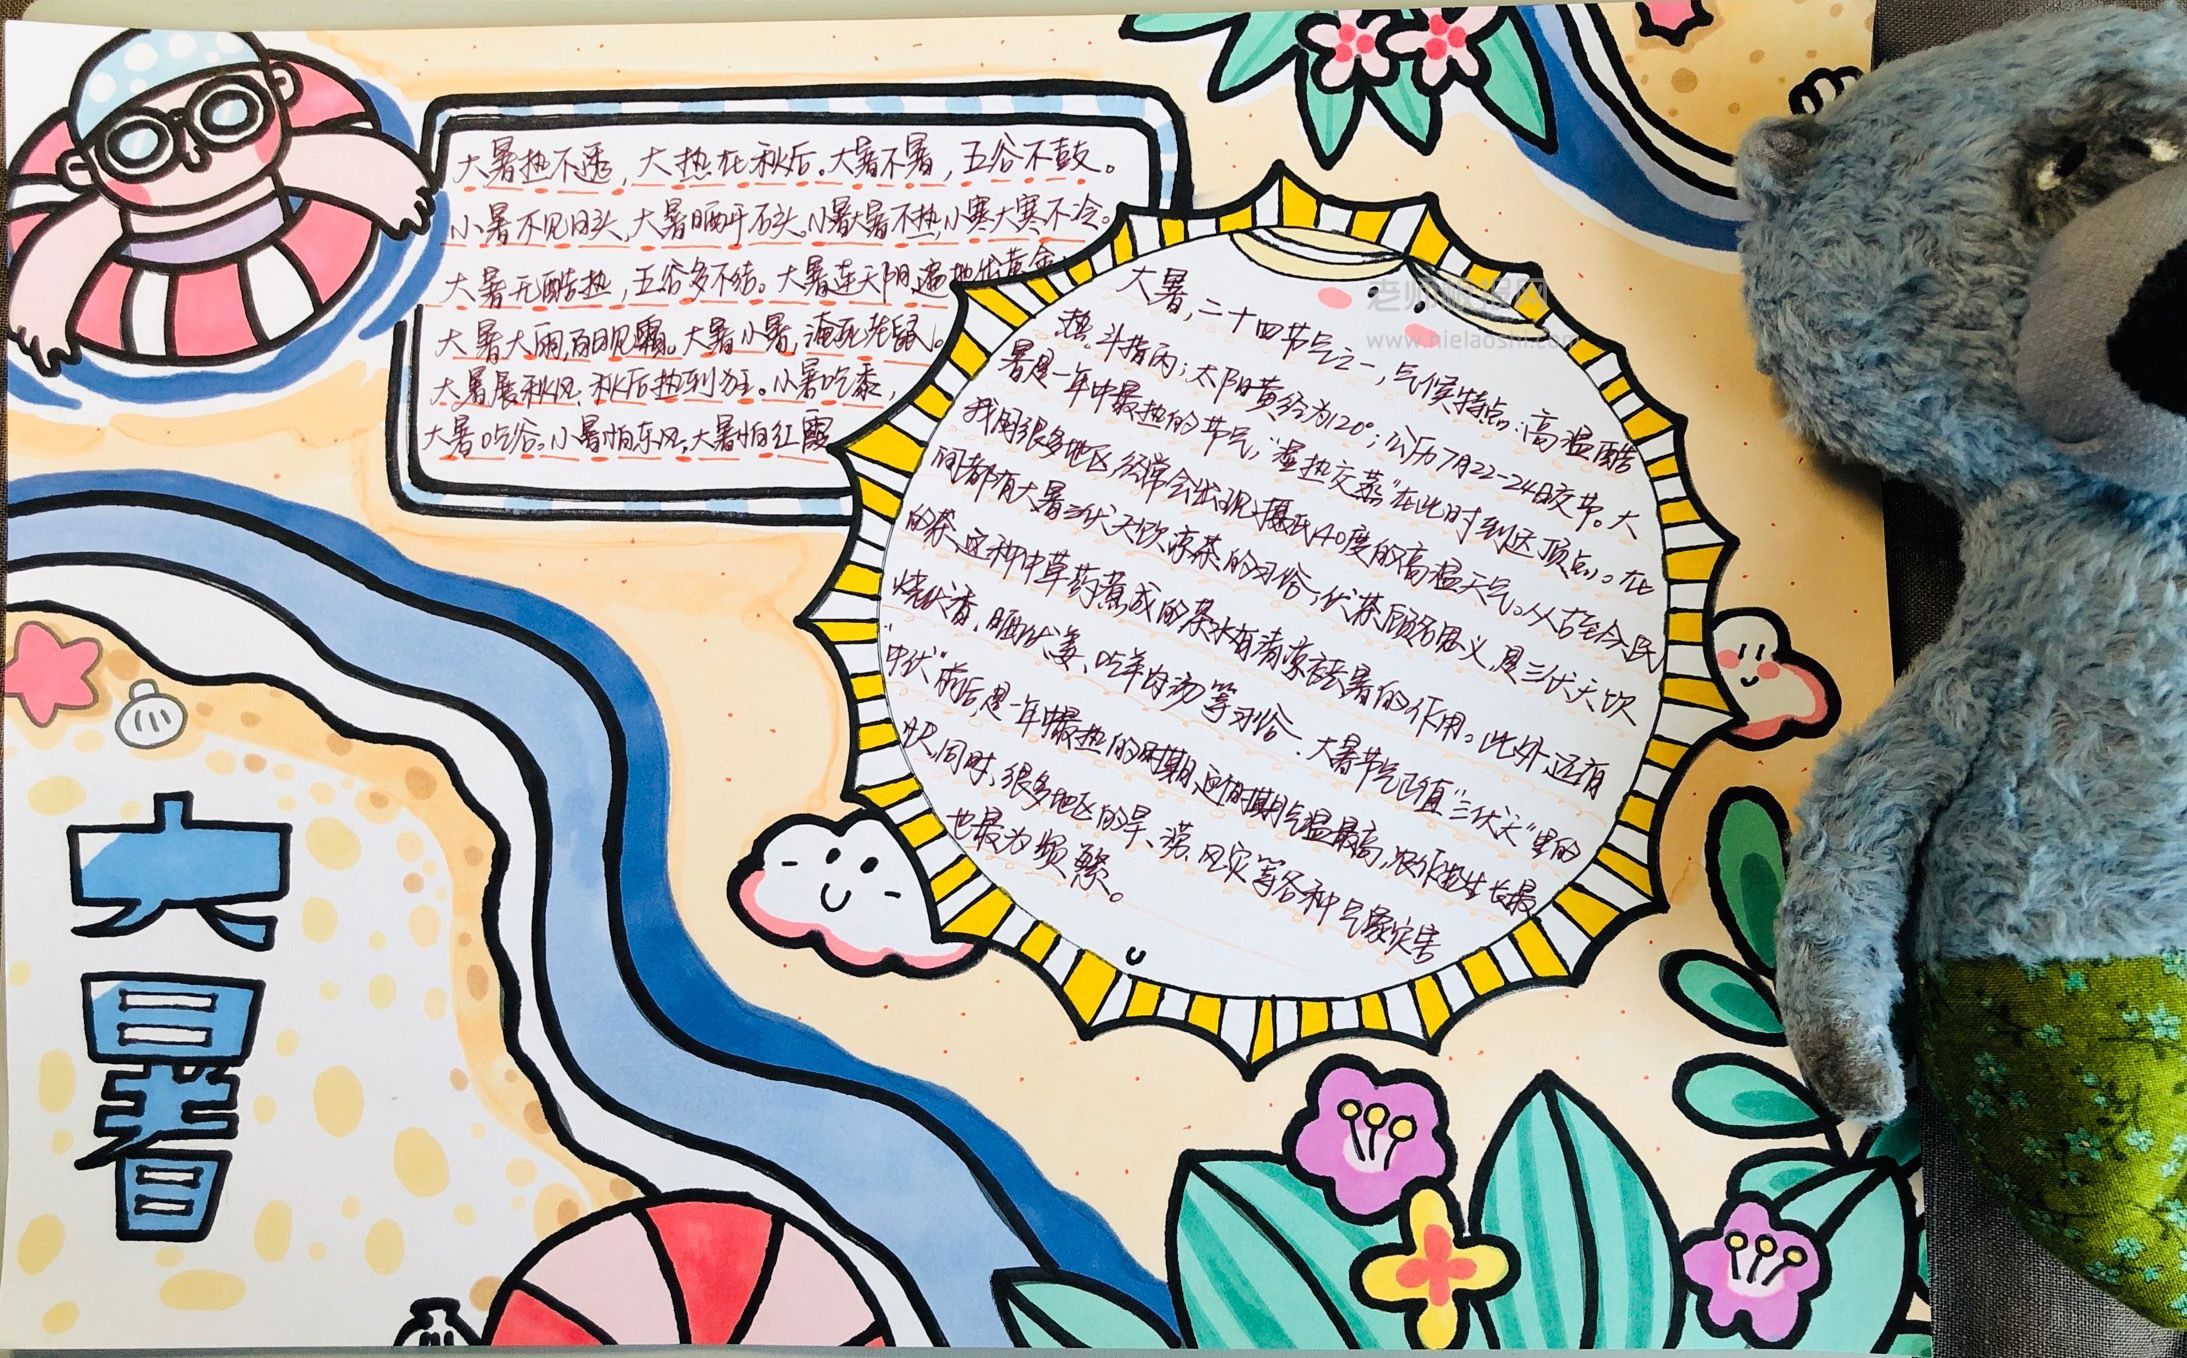 大暑
大暑热不透，大热在秋后。大暑不暑，五谷不鼓。
小暑不见日头，大暑晒开石头。小暑大暑不热，小寒大寒不冷。
大暑无酷热，五谷多不结。大暑连天阴，遍地出黄金
大暑大雨，百日见霜。大暑小暑，淹死老鼠。
大暑展秋风，秋后热到狂。小暑吃黍，
大暑吃谷。小暑怕东风，大暑怕红霞
大暑，二十四节气之一，气候特点：高温酷
热。斗指丙；太阳黄经为120°；公历7月22-24日交节。大
暑是一年中最热的节气，“湿热交蒸”在此时到达顶点。在
我国很多地区经常会出现摄氏40度的高温天气。从古至今民
间都有大暑三伏天饮凉茶的习俗，伏茶顾名思义，是三伏天饮
的茶，这种中草药煮成的茶水有清凉祛暑的作用。此外，还有
烧伏香，晒伏姜、吃羊肉汤等习俗。大暑节气正值“三伏天”里的
“中伏”前后，是一年中最热的时期，这个时期气温最高，农作物生长最
快，同时，很多地区的旱、涝、风灾等各种气象灾害
也最为频繁。
老师板报网
www.nielaoshi.com